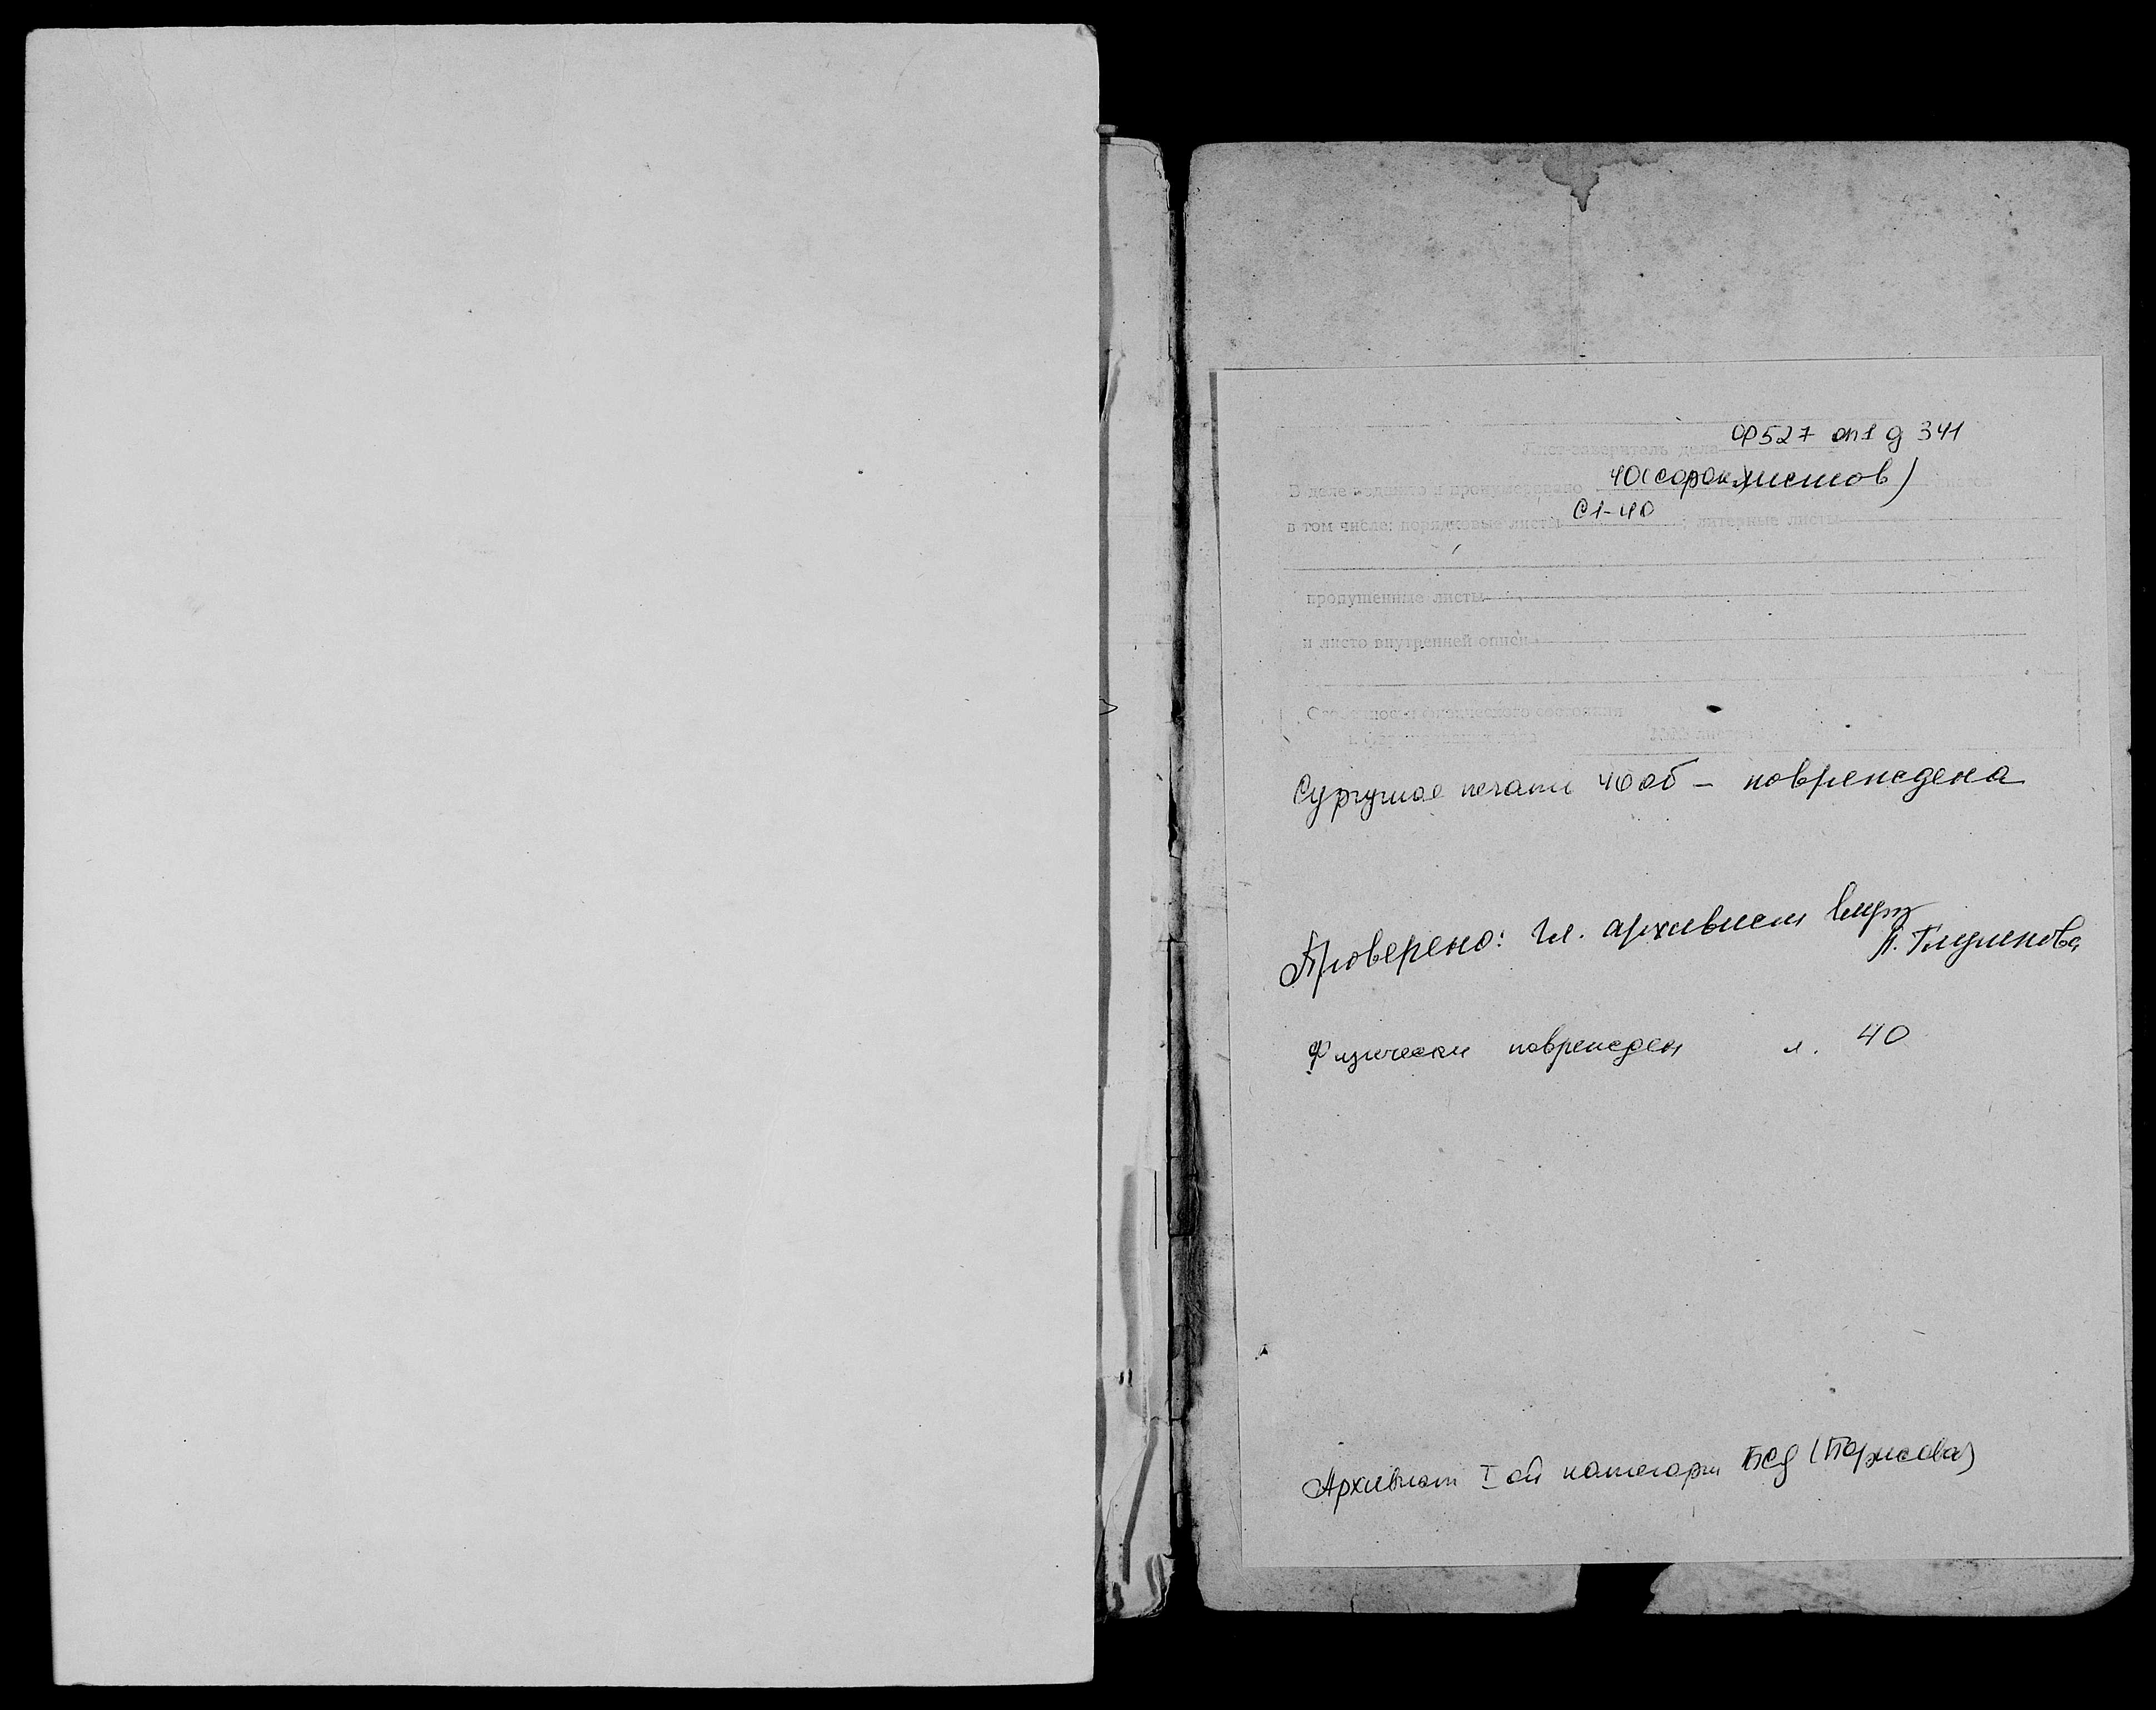 Ф527 оп1 д 341
Лист-заверитель дела
В деле подшито и пронумеровано 40 (сорок листов) листов
С 1-40
в том числе: порядковые листы ; литерные листы
пропущенные листы
и листо внутренней описи
Особенности физического состояния
и формирования дела №№ листов
Сургучная печать 40 об - повреждена
Проверено: Гл. архивист
Физически поврежден л. 40
Архивист I ой категори (Борисова)